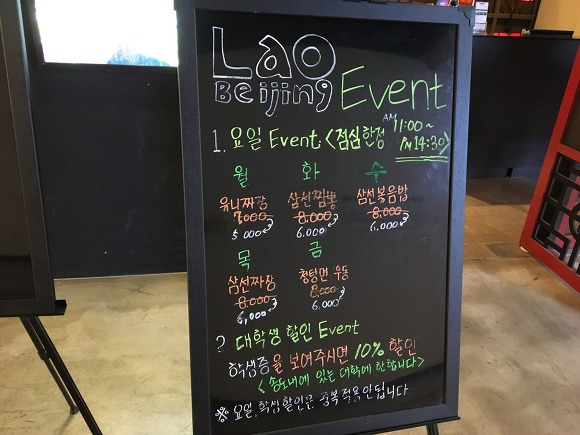 Lao
Beijing Event
1. 요일 Event <점심한정 AM 11:00 ~ PM 14:30>
월 화 수
유니짜장 삼선짬뽕 삼선볶음밥
7,000 8,000 8,000
5,000 6,000 6,000
목 금
삼선짜장 청탕면 우동
8,000 8,000
6,000 6,000
2 대학생 할인 Event
학생증을 보여주시면 10% 할인
<송도내에 있는 대학에 한합니다>
※ 요일, 학생할인은 중복적용안됩니다